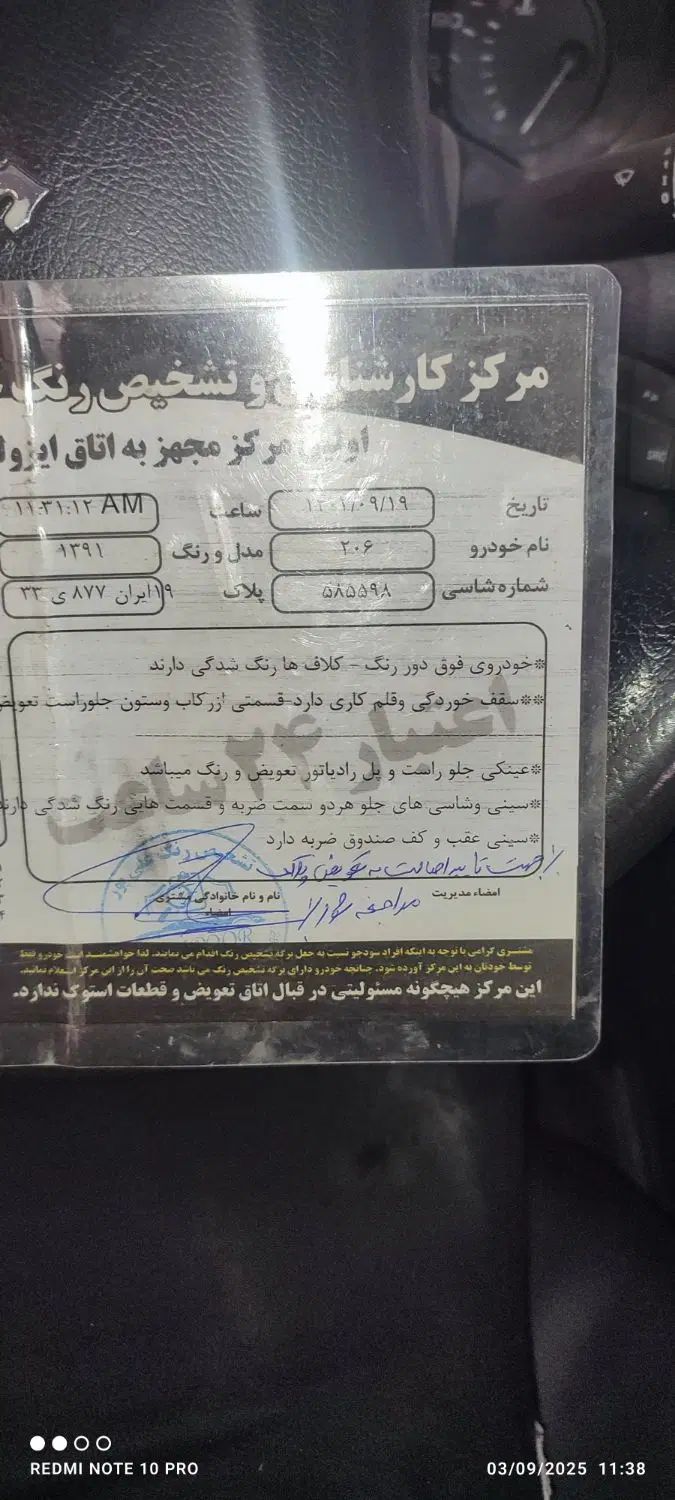 مرکز کارشناسی و تشخیص رنگ
اولین مرکز مجهز به اتاق ایزو
تاریخ ۱۴۰۱/۰۹/۱۹ ساعت ۱۱:۳۱:۱۲ AM
نام خودرو ۲۰۶ مدل و رنگ ۱۳۹۱
شماره شاسی ۵۸۵۵۹۸ پلاک ۱۹ایران ۸۷۷ ی ۳۳
*خودروی فوق دور رنگ - کلاف ها رنگ شدگی دارند
**سقف خوردگی وقلم کاری دارد-قسمتی ازرکاب وستون جلوراست تعویض
اعتبار ۲۴ ساعت
*عینکی جلو راست و پل رادیاتور تعویض و رنگ میباشد
*سینی وشاسی های جلو هردو سمت ضربه و قسمت هایی رنگ شدگی دارند
*سینی عقب و کف صندوق ضربه دارد
جهت تایید اصالت به تعویض پلاک
مراجعه شود
امضاء مدیریت
نام و نام خانوادگی مشتری
امضاء
تشخیص رنگ
مشتری گرامی با توجه به اینکه افراد سودجو نسبت به جعل برگه تشخیص رنگ اقدام می نمایند، لذا خواهشمند است خودرو فقط
توسط خودتان به این مرکز آورده شود. چنانچه خودرو دارای برگه تشخیص رنگ می باشد صحت آن را از این مرکز استعلام نمائید.
این مرکز هیچگونه مسئولیتی در قبال اتاق تعویض و قطعات استوک ندارد.
REDMI NOTE 10 PRO
03/09/2025 11:38